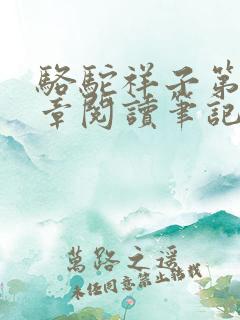 駱駝祥子第
章閱讀筆記
萬路之遥
未經同意禁止轉載